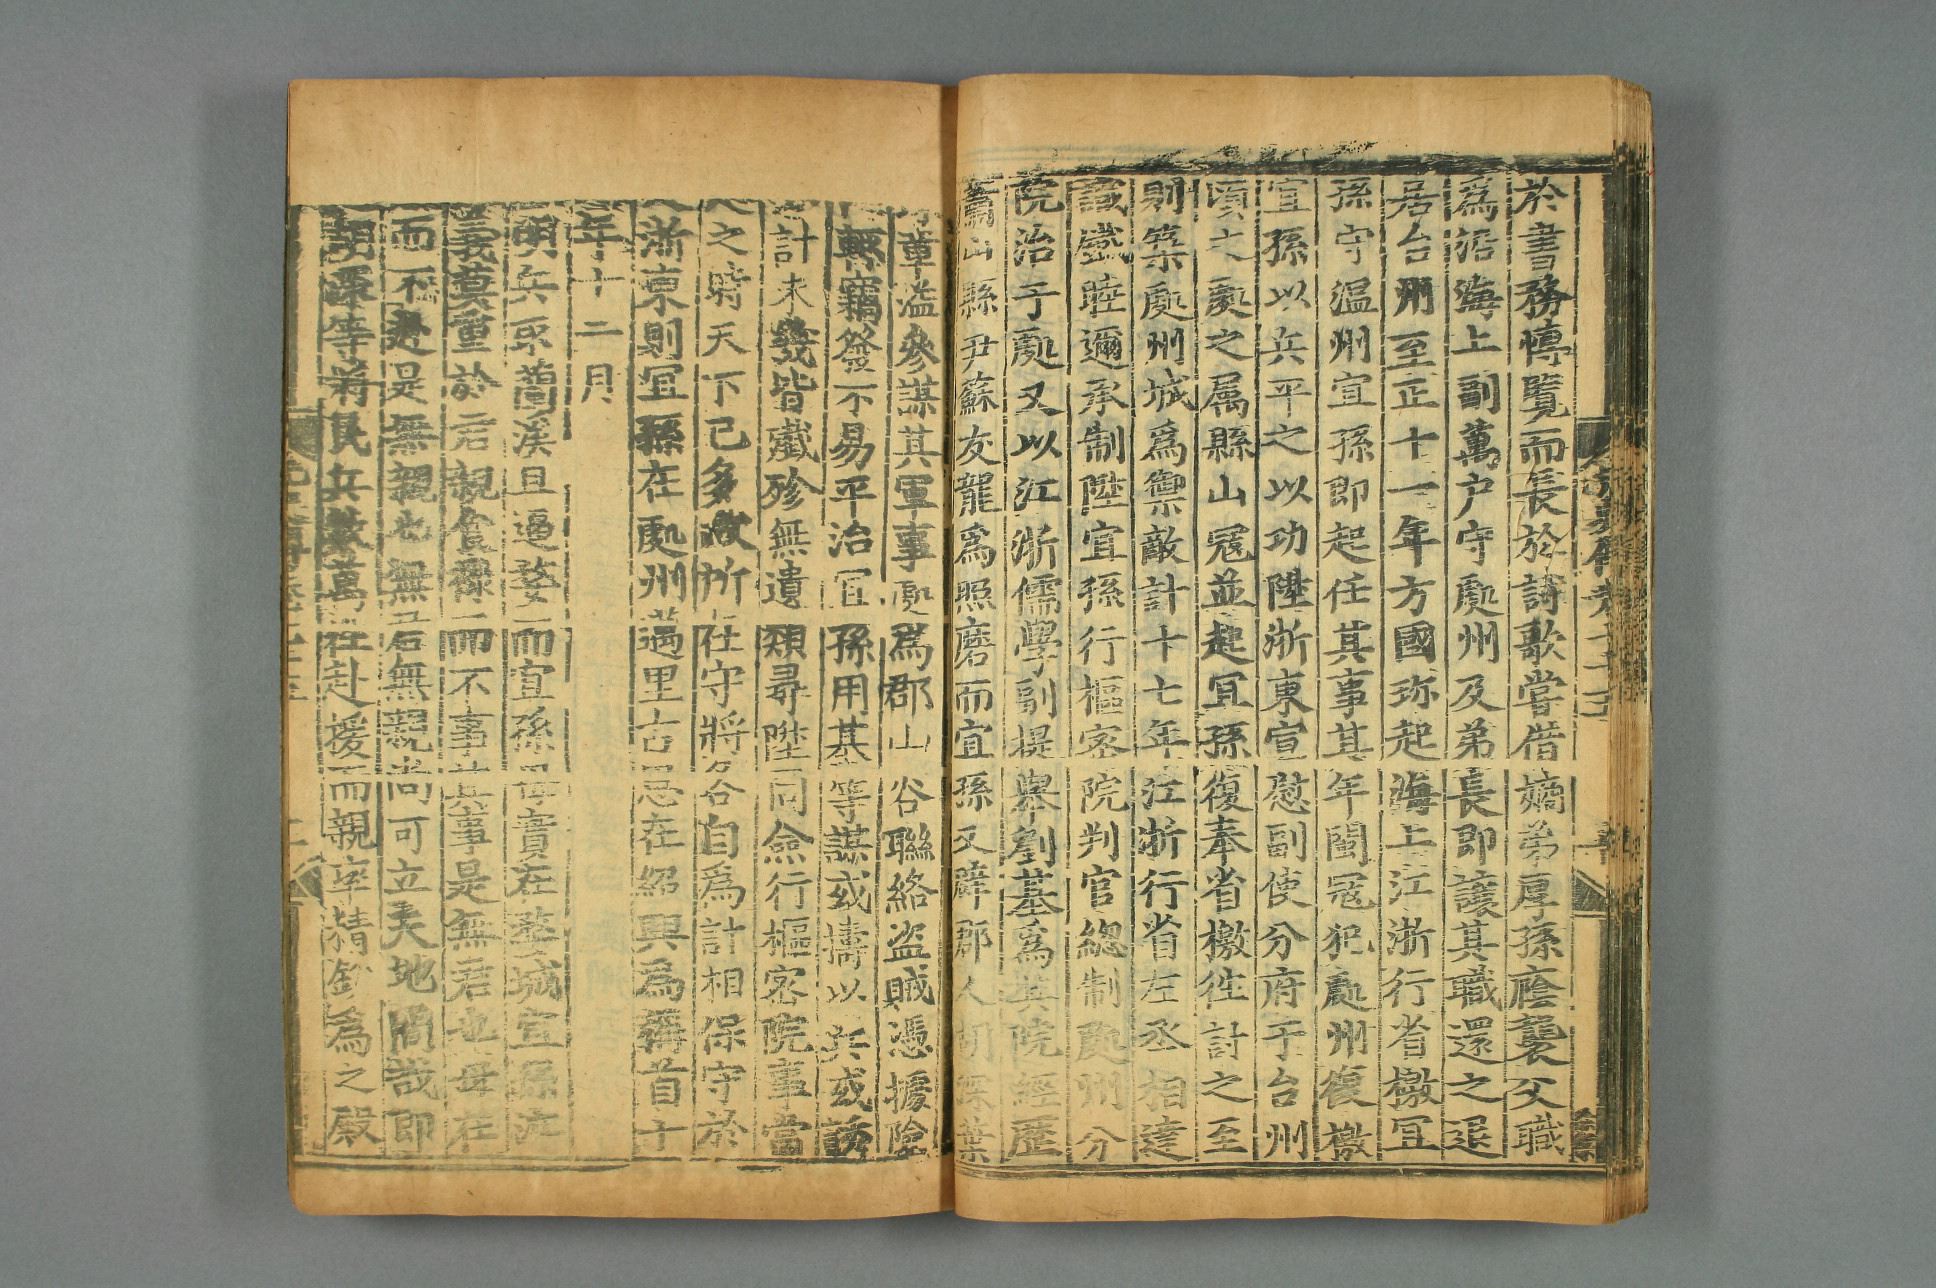 於書務慱覽而長於詩歌嘗借嫡弟厚孫䕃襲父職
爲沿海上副萬户守處州及弟長即讓其職還之退
居台州至正十一年方國珎起海上江浙行省檄冝
孫守温州宜孫即起任其事其年閩冦犯處州復檄
宜孫以兵平之以功陞浙東宣慰副使分府于台州
頃之處之属縣山冦並起冝孫復奉省檄徃討之至
則築處州城爲禦敵計十七年江浙行省左丞相達
識鐵睦邇承制陞宜孫行樞宻院判官總制處州分
院治于處又以江浙儒學副提舉劉基爲其院經歴
蕭山縣尹蘇友龍爲照磨而宜孫又辟郡人胡深葉
章溢參謀其軍事處爲郡山谷聯絡盗賊憑據險
輙竊發不易平治冝孫用基等謀或擣以兵或誘
計未幾皆殱殄無遺類尋陞同僉行樞宻院事當
之時天下已多故所在守將各自爲計相保守於
浙東則冝孫在處州邁里古思在紹興爲稱首十
年十二月
明兵取蘭溪且逼婺而宜孫母實在婺城宜孫泣
義莫重於君親食禄而不事其事是無君也母在
而不赴是無親也無君無親尚可立天地間哉即
胡深等將民兵數萬徃赴援而親率精鋭爲之殿